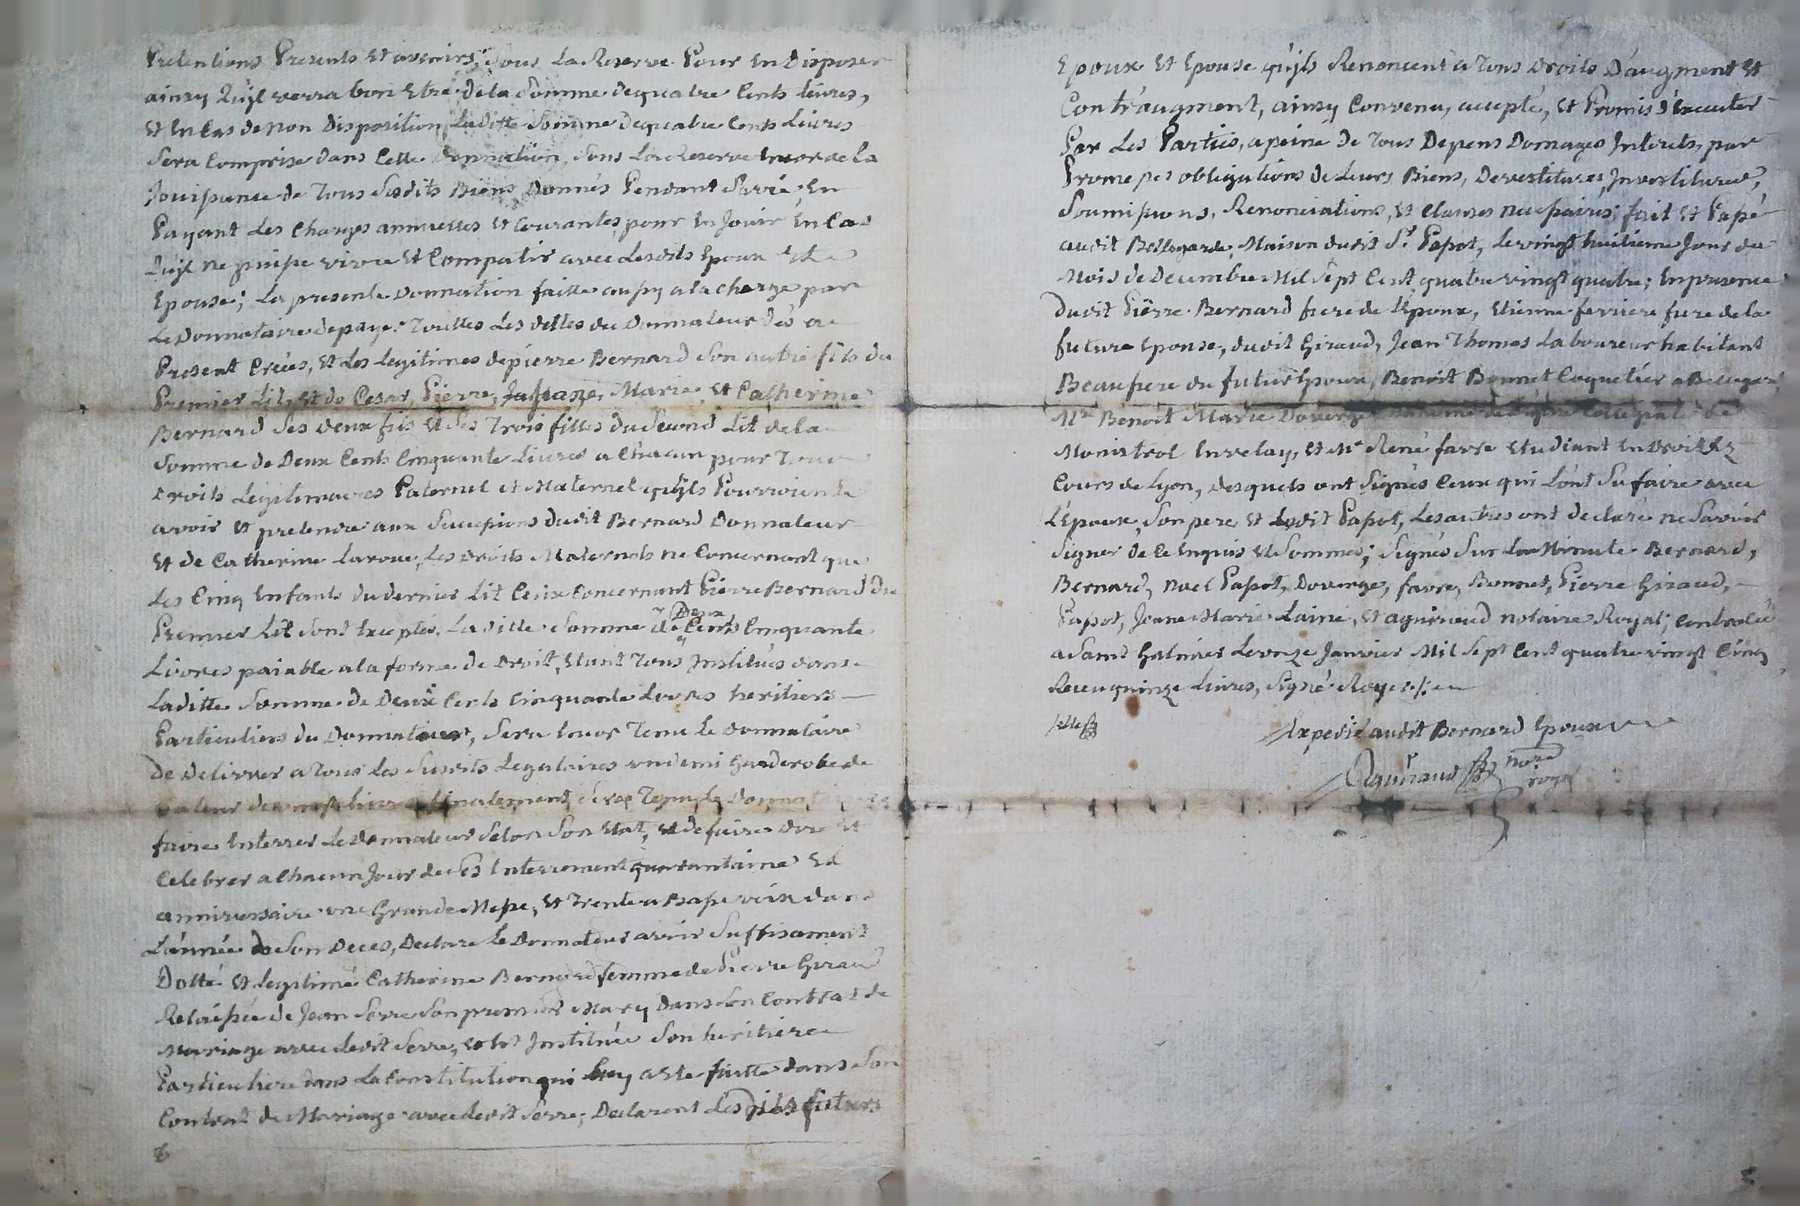 Pretentions Presents Et avenirs, sous La Reserve Pour En Disposer
ainsy Qu'jl verra bon Etre de la Somme de quatre Cents livres,
Et En Cas de non Disposition Laditte Somme de quatre Cents Livres
Sera Comprise dans Cette Donnation, sous La Reserve Encor de La
Jouissance de Tous Susdits Biens Donnés Pendant Sa vie, En
Payant Les Charges annuelles Et Courantes pour En Jouir En Cas
Qu'jl ne puisse vivre Et Compatir avec Lesdits Epoux Et
Epouse; La presente Donnation faitte aussy a la charge par
Le Donnataire de payer Touttes Les dettes du Donnateur Dès ce
Present Créées, Et Les Legitimes de pierre Bernard Son autre fils du
Premier Lit, Et de Cesar, Pierre, Marie, Et Catherine
Bernard Ses deux fils Et Ses Trois filles du Second Lit de la
Somme de Deux Cents Cinquante Livres a Chacun pour Tous
Droits Legitimaires Paternel et Maternel qu'jls Pourroient
avoir Et pretendre aux Successions dudit Bernard Donnateur
Et de Catherine Laroue, Les Droits Maternels ne Concernant que
Les Cinq Enfants du dernier Lit Ceux Concernant Pierre Bernard du
Premier Lit Sont Exceptes, Laditte Somme de Deux Cents Cinquante
Livres paiable a la forme de Droit, Etant Tous Institués dans
Laditte Somme de Deux Cents Cinquante Livres heritiers
Particuliers du Donnateur, Sera Encor Tenu le Donnataire
de Delivrer a Tous Les Susdits Legataires un demi Garderobe de
valeur de livres finalement Sera Tenu Le Donnataire
faire Enterrer Le Donnateur Selon Son Etat, Et de faire dire Et
Celebrer a Chacun Jour de Ses Enterrement quarantaine Et
anniversaire une Grande Messe, Et Trente a Basse voix dans
L'année de Son Deces, Declare Le Donnateur avoir Suffisament
Dotté Et Legitimé Catherine Bernard femme de Pierre Giraud
Relaissée de Jean Serre Son premier Mary dans Son Contrat de
Mariage avec Ledit Serre, Institué Son heritiere
Particuliere dans La Constitution qui Luy a Ete faitte dans Son
Contrat de Mariage avec Ledit Serre; Declarent Lesdits futurs
Epoux Et Epouse qu'jls Renoncent a Tous Droits D'augment Et
Contr'augment, ainsy Convenu, accepté, Et Promis d'Executer
Par Les Parties, a peine de Tous Depens Domages Interets, par
Promesses obligations de Leurs Biens, Devestitures, Investitures,
Soumissions, Renonciations, Et Clauses necessaires; fait Et Passé
audit Bellegarde, Maison dudit Sr Papot, Le vingt huitieme Jour du
Mois de Decembre Mil Sept Cent quatre vingt quatre; En presence
dudit Pierre Bernard frere de L'Epoux, Etienne ferriere frere de la
future Epouse, dudit Giraud, Jean Thomas Laboureur habitant
Beaupere du futur Epoux, Benoit Bonnet Coquetier a
Mre Benoit Marie Doverge de
Monistrol En velay, Et Mr René favre Etudiant En Droit Ez
Cours de Lyon, desquels ont Signés Ceux qui L'ont Su faire avec
L'Epoux, Son pere Et Ledit Papot, Les autres ont declaré ne Savoir
Signer de Ce Enquis Et Sommés; Signés Sur La Minute Bernard,
Bernard, Noel Papot, Doverge, favre, Bonnet, Pierre Giraud,
Papot, Jeane Marie Lainé, Et aguiraud notaire Royal; Controllé
a Saint Galmier Le onze Janvier Mil Sept Cent quatre vingt Cinq
Receu quinze Livres, Signé
Expedié audit Bernard Epoux
Aguiraud nore
royal